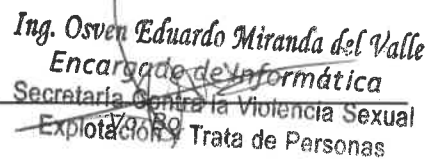 Ing. Osven Eduardo Miranda del Valle
Encargado de Informática
Secretaría Contra la Violencia Sexual
Explotación y Trata de Personas
Vo. Bo.